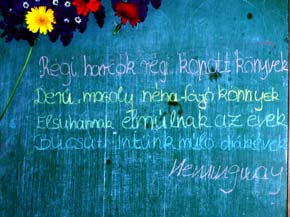 Régi harcok régi kopott könyvek
Derű, mosoly néha fájó könnyek
Elsuhannak elmúlnak az évek
Búcsút intünk múló diákévek
Hemingway